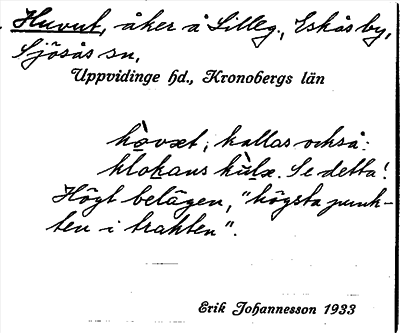 Huvut, åker å Lilleg., Eskås by,
Sjösås sn,
Uppvidinge hd., Kronobergs län
hòvæt; kallas också:
klokans kùlæ. Se detta!
Högt belägen, "högsta punk-
ten i trakten".
Erik Johannesson 1933